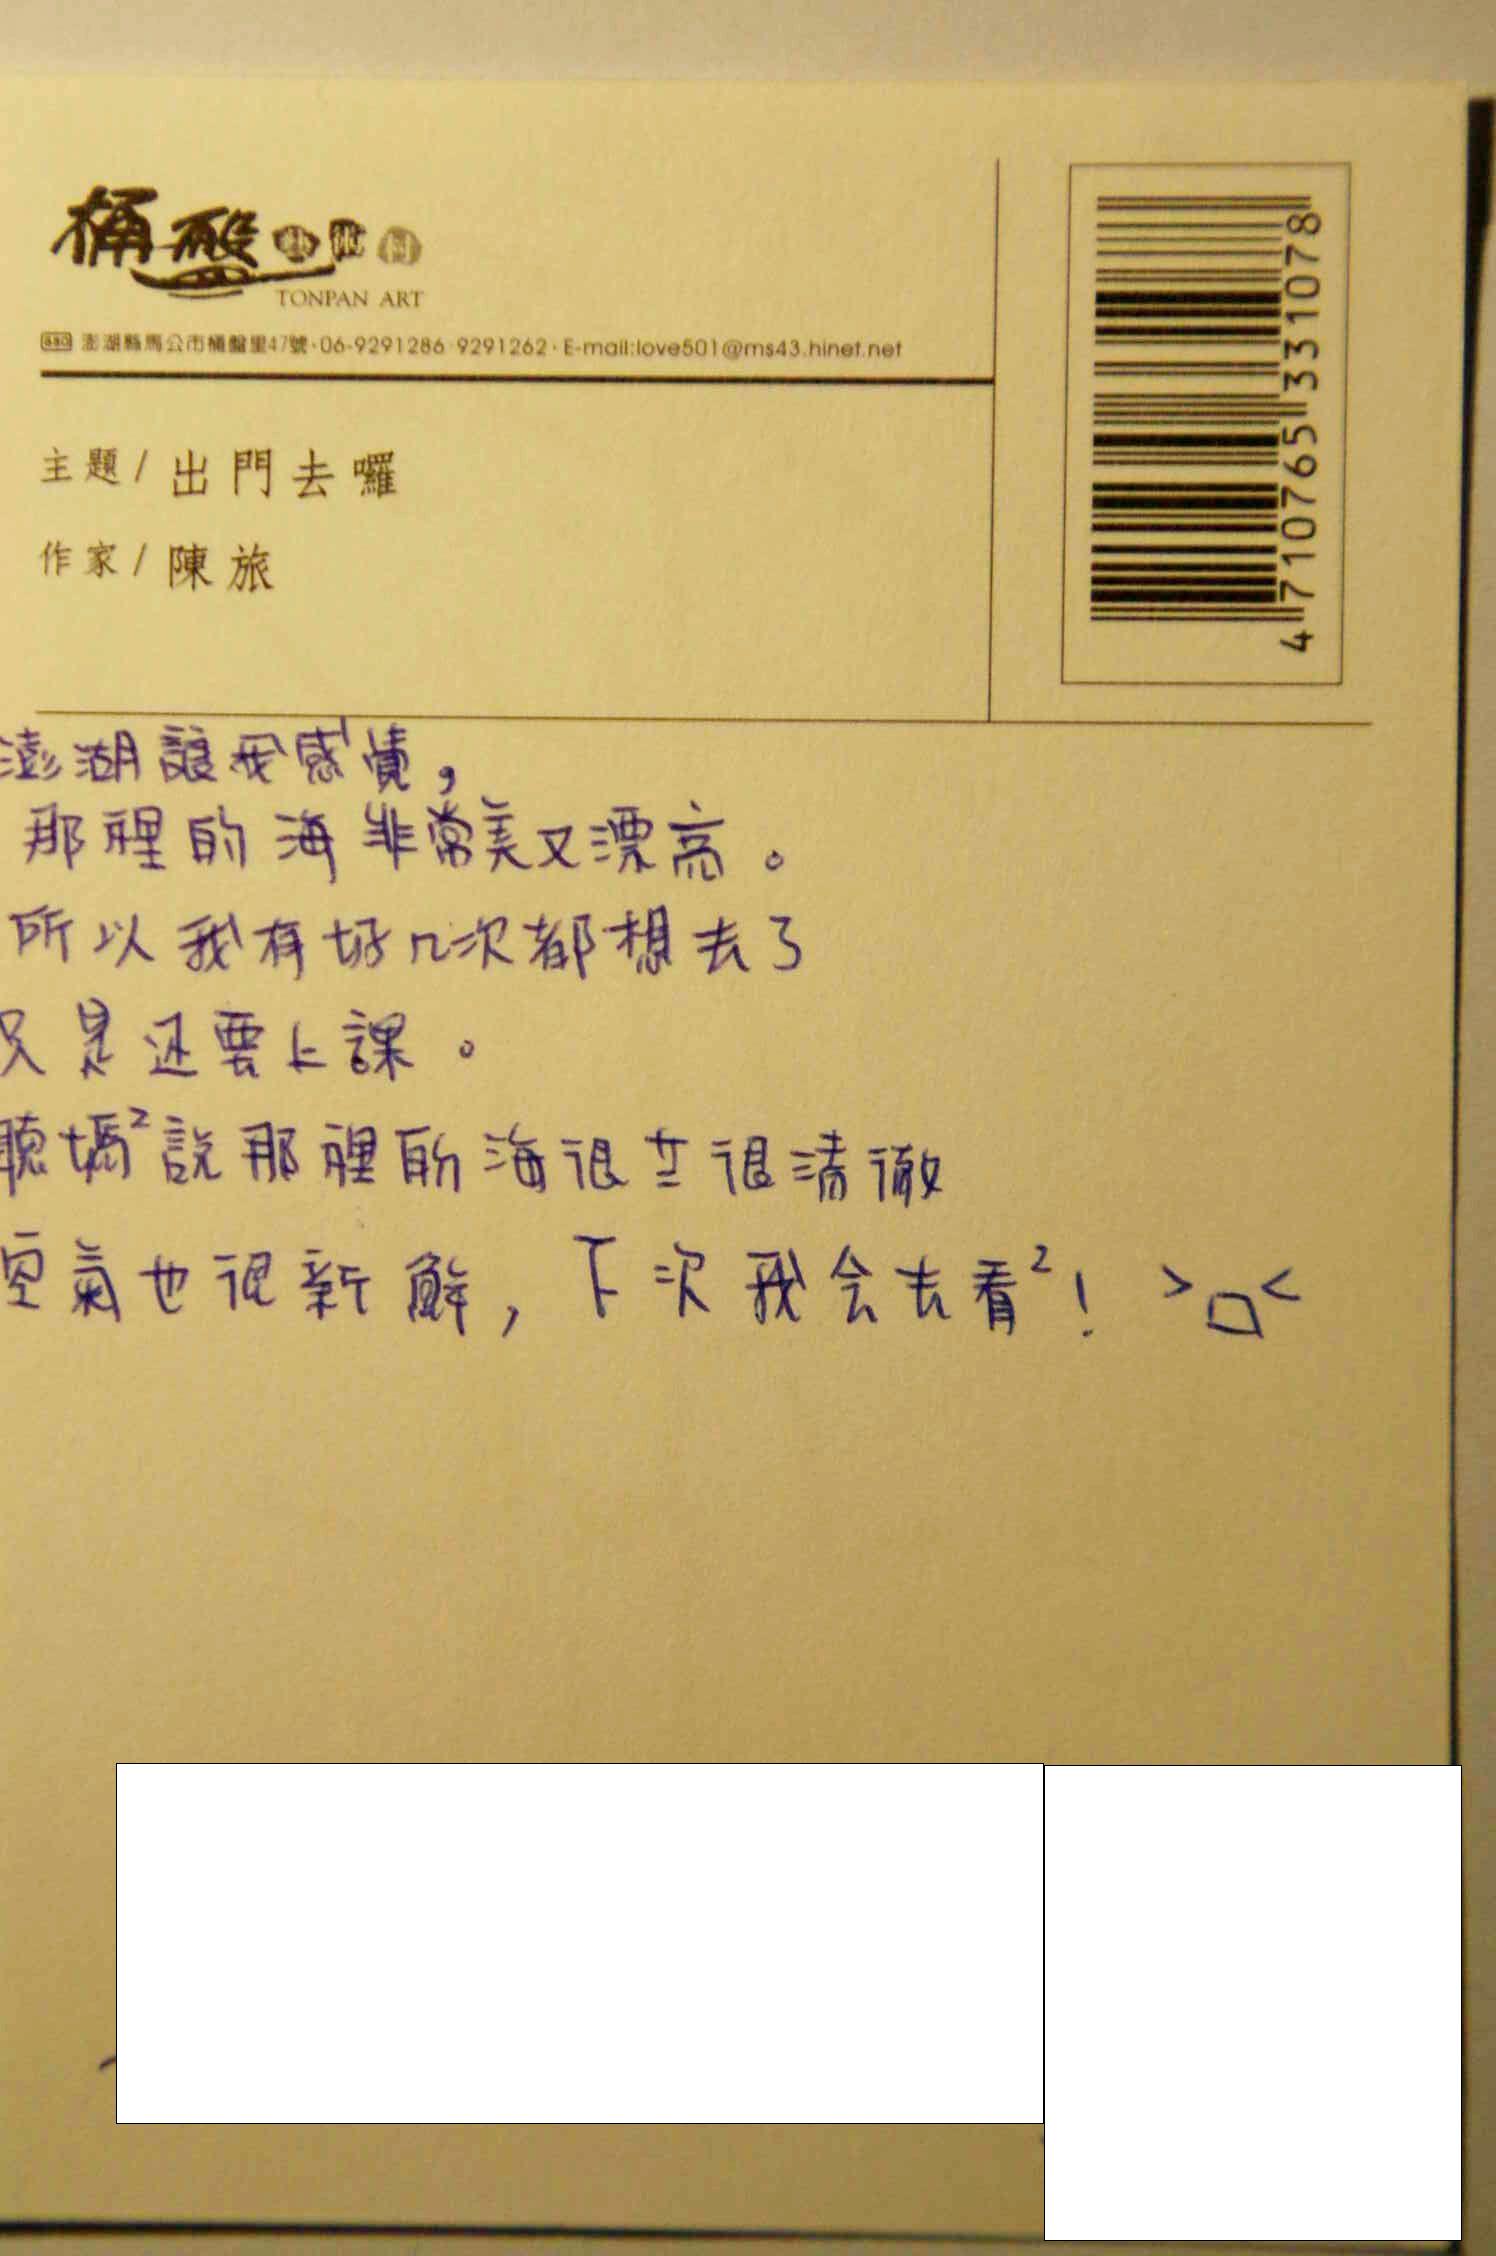 桶盤藝術村
TONPAN ART
880 澎湖縣馬公市桶盤里47號·06-9291286 9291262·E-mail:love501@ms43.hinet.net
主題/出門去囉
作家/陳旅
4 710765 331078
澎湖讓我感覺，
那裡的海非常美又漂亮。
所以我有好几次都想去了
只是还要上課。
聽媽²說那裡的海很藍很清徹
空氣也很新鮮，下次我会去看²！>口<